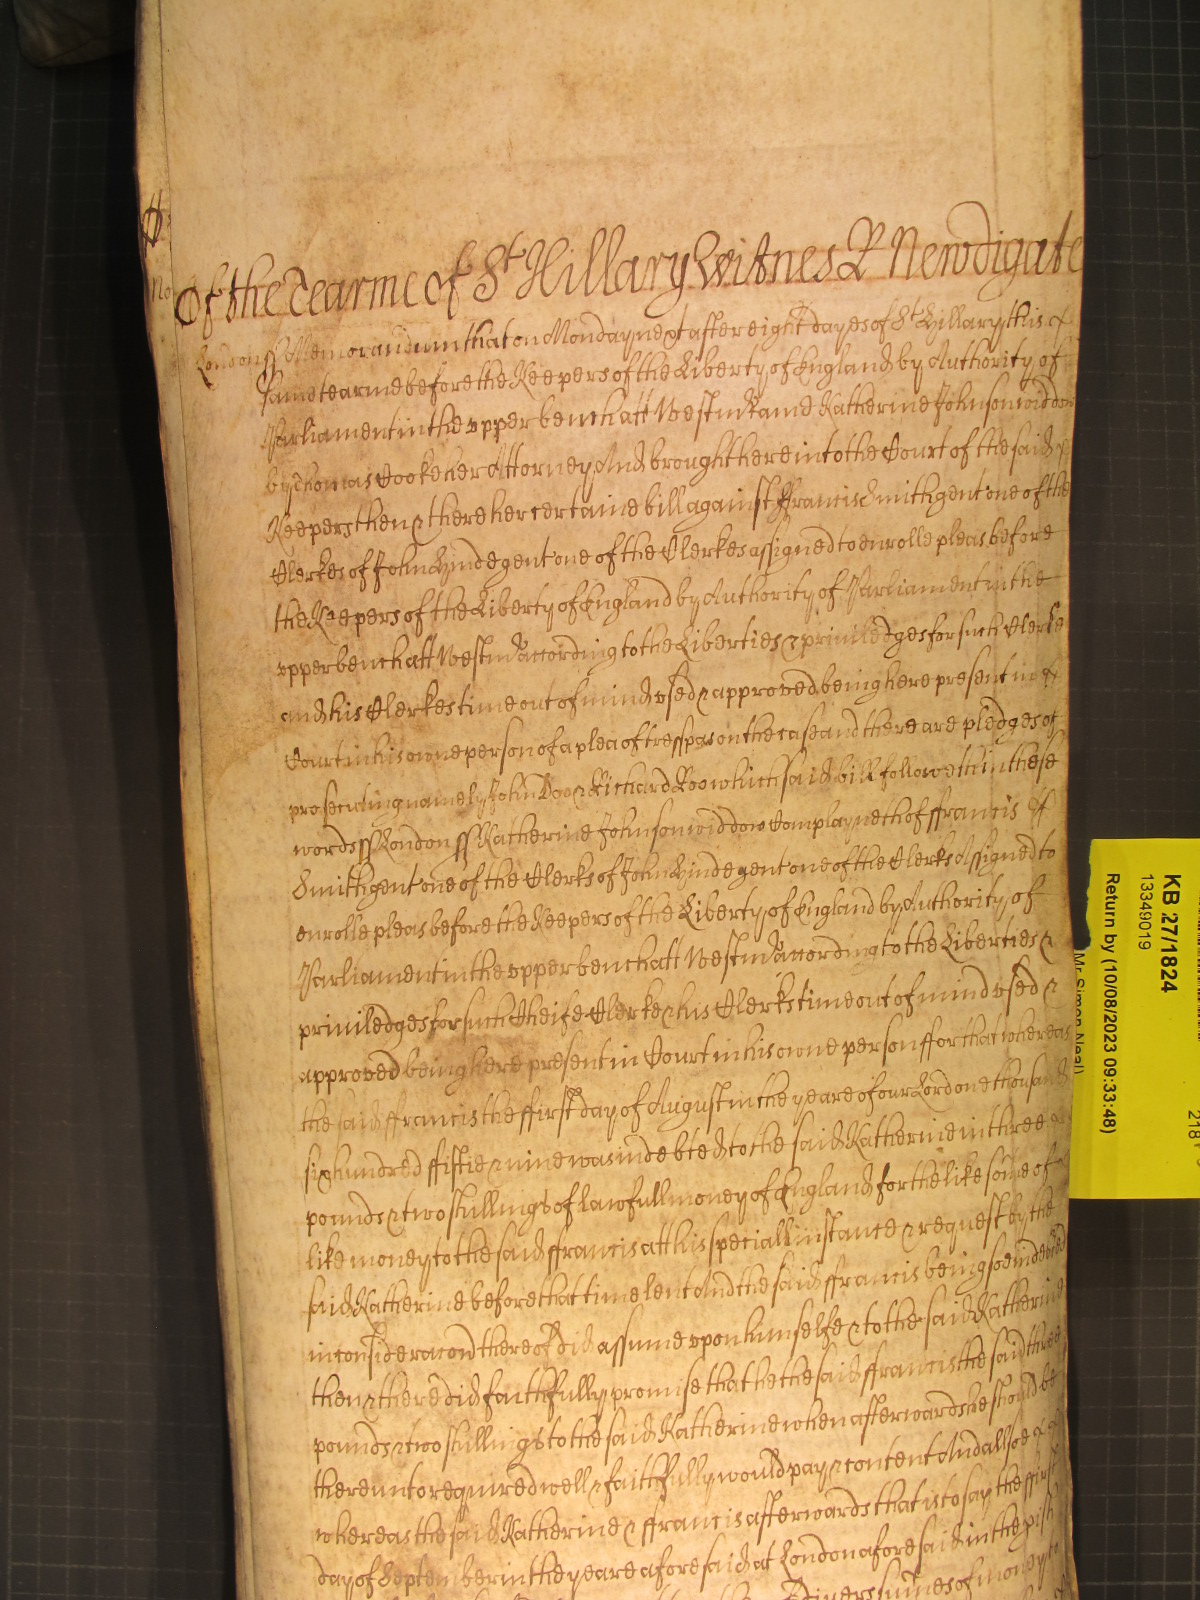 Of the Tearme of St Hillary Witnes R Newdigate
London ss Memorandum that on Monday next after eight dayes of St Hillary this
same tearme before the Keepers of the Liberty of England by Authority of
Parliament in the vpper bench att Westmr came Katherine Johnson widdow
by Thomas Cooke her Attorney And brought here into the Court of the said
Keepers then & there her certaine bill against ffrancis Smith gent one of the
Clerkes of John Hynde gent one of the Clerkes assigned to enrolle pleas before
the Keepers of the Liberty of England by Authority of Parliament in the
vpper bench att Westmr according to the Liberties & priviledges for such Clerke
and his Clerkes time out of mind vsed & approved being here present in
Court in his owne person of a plea of tresspas on the case and there are pledges of
prosecuting namely John Doo & Richard Roo which said bill followeth in these
words ss London ss Katherine Johnson widdow Complayneth of ffrancis
Smith gent one of the Clerks of John Hynde gent one of the Clerks Assigned to
enrolle pleas before the Keepers of the Liberty of England by Authority of
Parliament in the vpper bench att Westmr according to the Liberties &
priviledges for such Cheife Clerke & his Clerks time out of mind vsed &
approved being here present in Court in his owne person ffor that whereas
the said ffrancis the ffirst day of August in the yeare of our Lord one thousand
six hundred fiftie & nine was indebted to the said Katherine in three
pounds & two shillings of lawfull money of England for the like some of
like money to the said ffrancis att his speciall instance & request by the
said Katherine before that time lent And the said ffrancis being soe indebted
in consideracon thereof did assume vpon himselfe & to the said Katherine
then & there did faithfully promise that he the said ffrancis the said three
pounds & two shillings to the said Katherine when afterwards he should be
thereunto required well & faithfully would pay & content And allsoe
whereas the said Katherine & ffrancis afterwards that is to say the ffirst
day of September in the yeare aforesaid at London aforesaid in the pish
Divers sumes of money to
KB 27/1824
13349019
Return by (10/08/2023 09:33:48)
Mr Simon Neal)